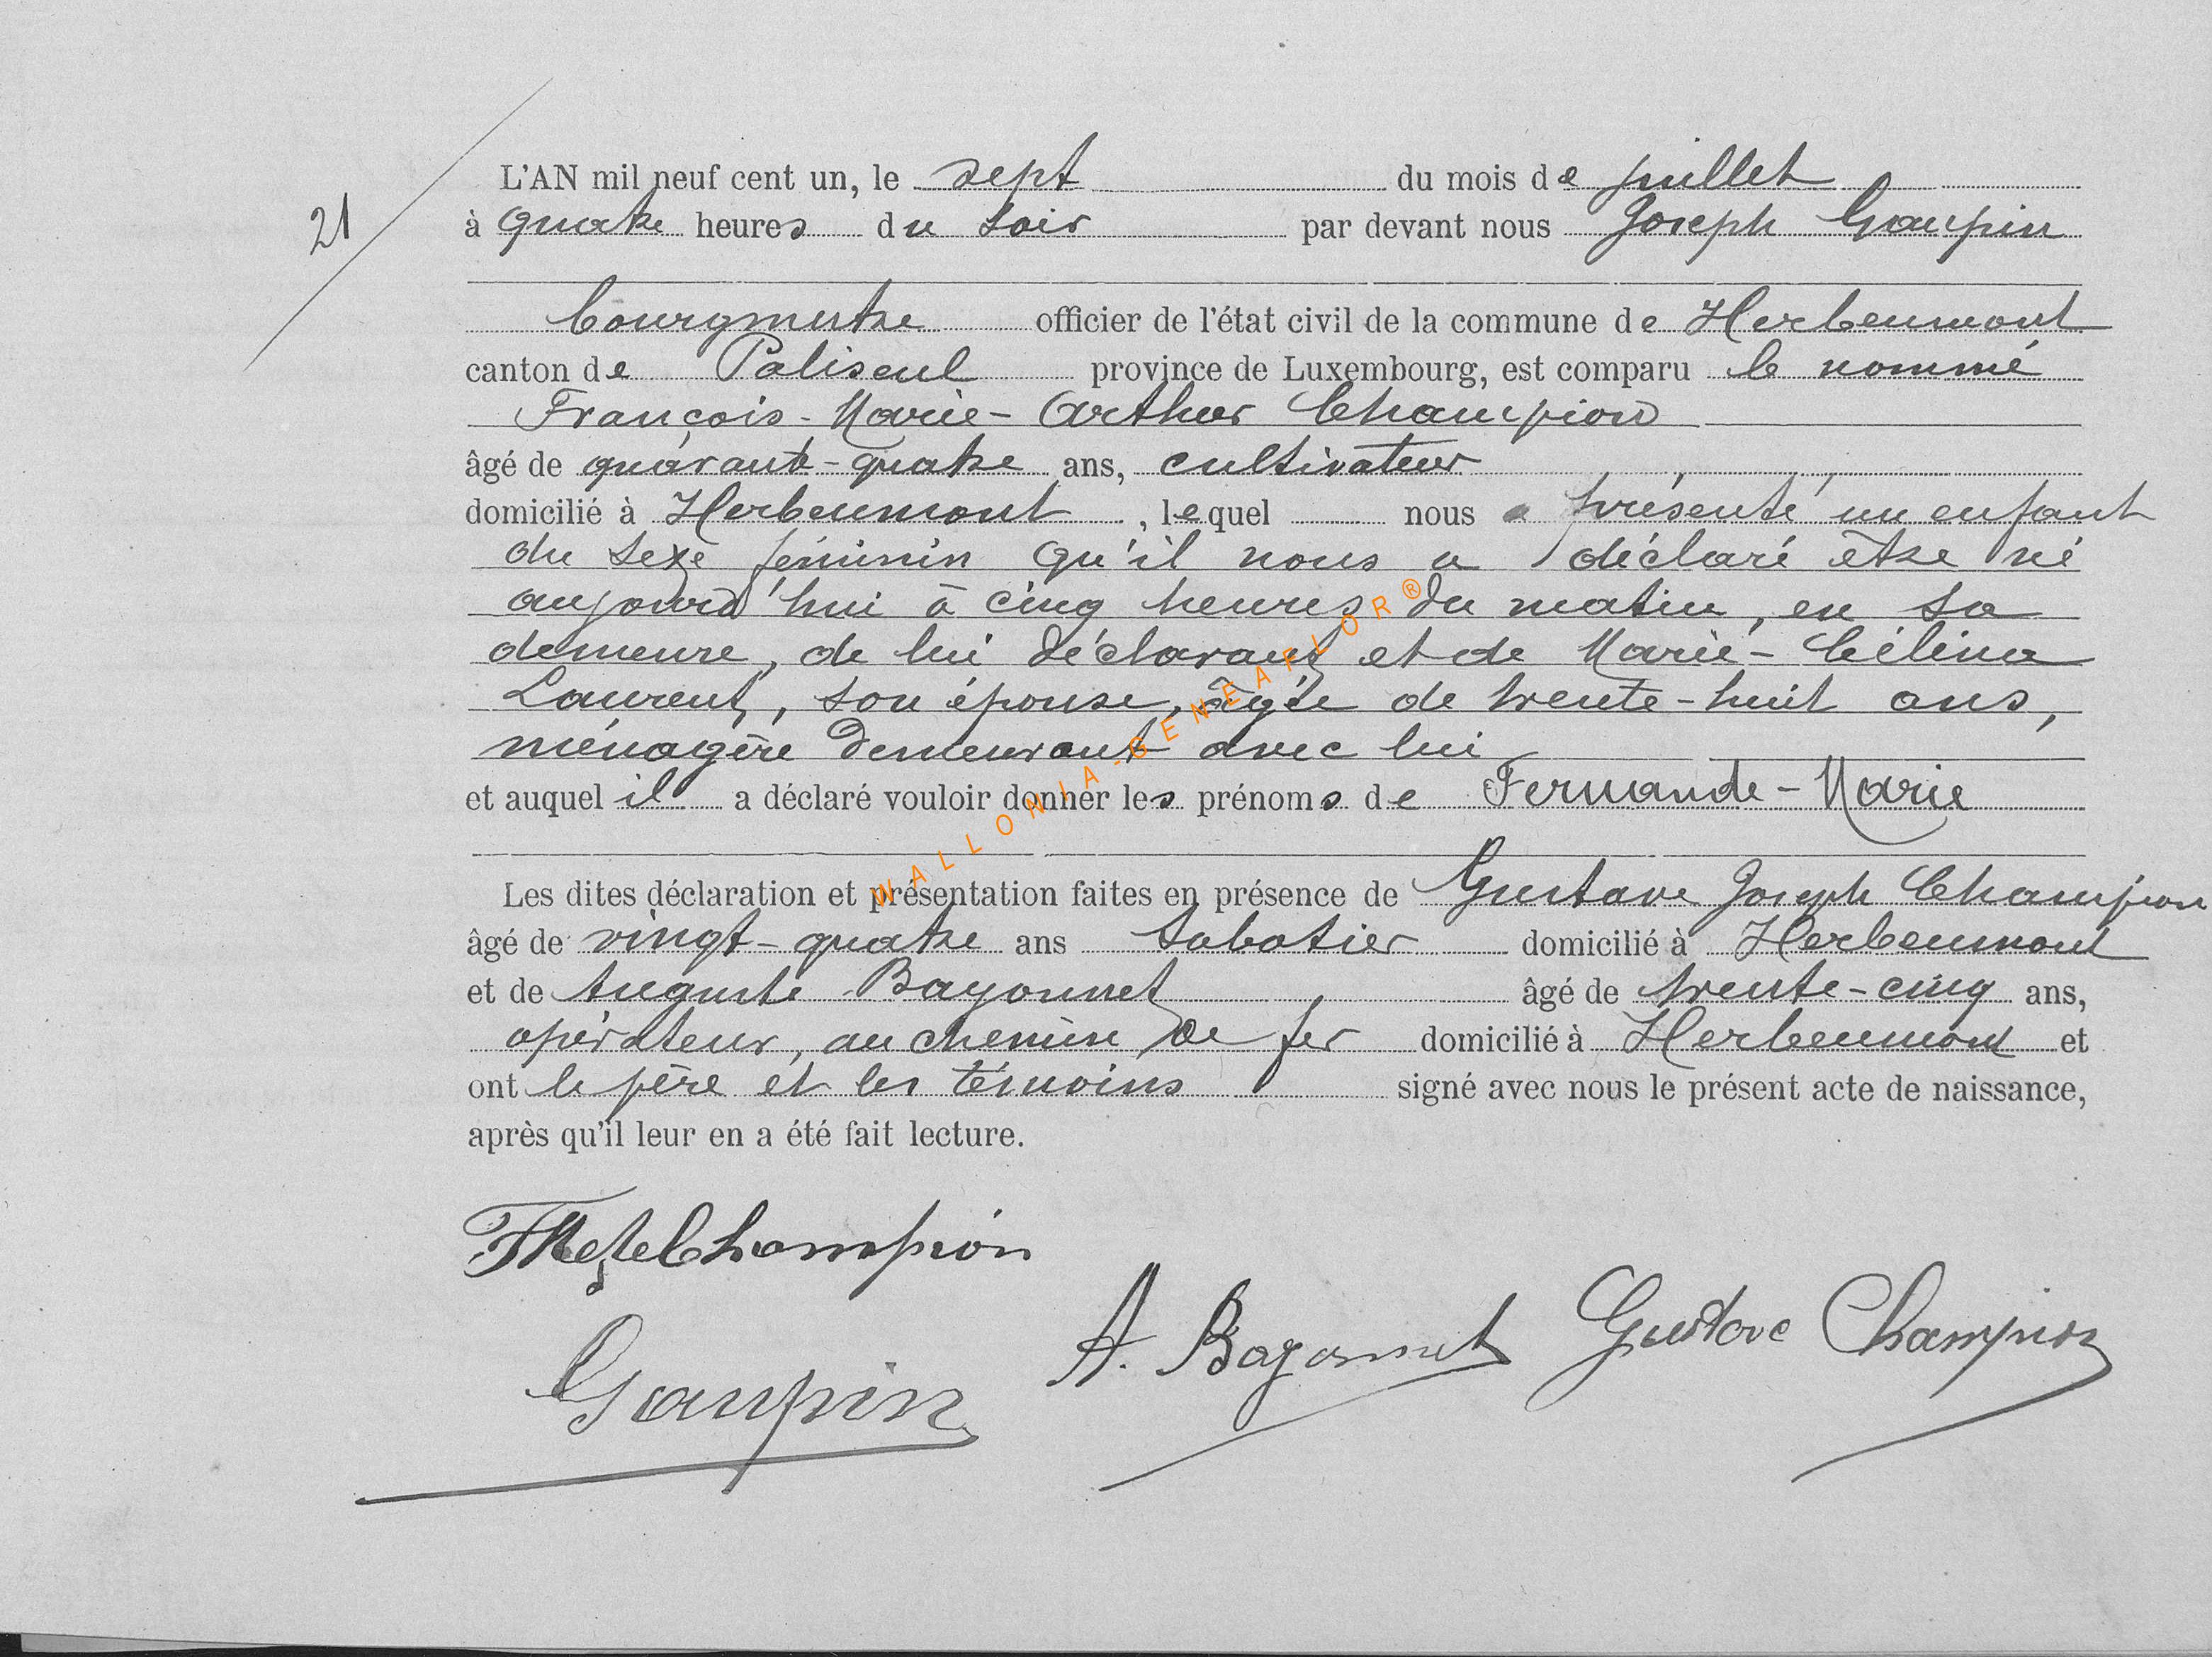 21
L'AN mil neuf cent un, le sept du mois de juillet
à quatre heures du soir par devant nous Joseph Gaupin
bourgmestre officier de l'état civil de la commune de Herbeumont
canton de Paliseul province de Luxembourg, est comparu le nommé
François-Marie-Arthur Champion
âgé de quarante-quatre ans, cultivateur
domicilié à Herbeumont, lequel nous a présenté un enfant
du sexe féminin qu'il nous a déclaré être né
aujourd'hui à cinq heures du matin, en sa
demeure, de lui déclarant et de Marie-Célina
Laurent, son épouse, âgée de trente-huit ans,
ménagère demeurant avec lui
et auquel il a déclaré vouloir donner les prénoms de Fernande-Marie
Les dites déclaration et présentation faites en présence de Gustave Joseph Champion
âgé de vingt-quatre ans sabotier domicilié à Herbeumont
et de Auguste Bayonnet âgé de trente-cinq ans,
opérateur, au chemin de fer domicilié à Herbeumont et
ont le père et les témoins signé avec nous le présent acte de naissance,
après qu'il leur en a été fait lecture.
Champion
A. Bayonnet Gustave Champion
Gaupin
WALLONIA-GENEAFLOR®